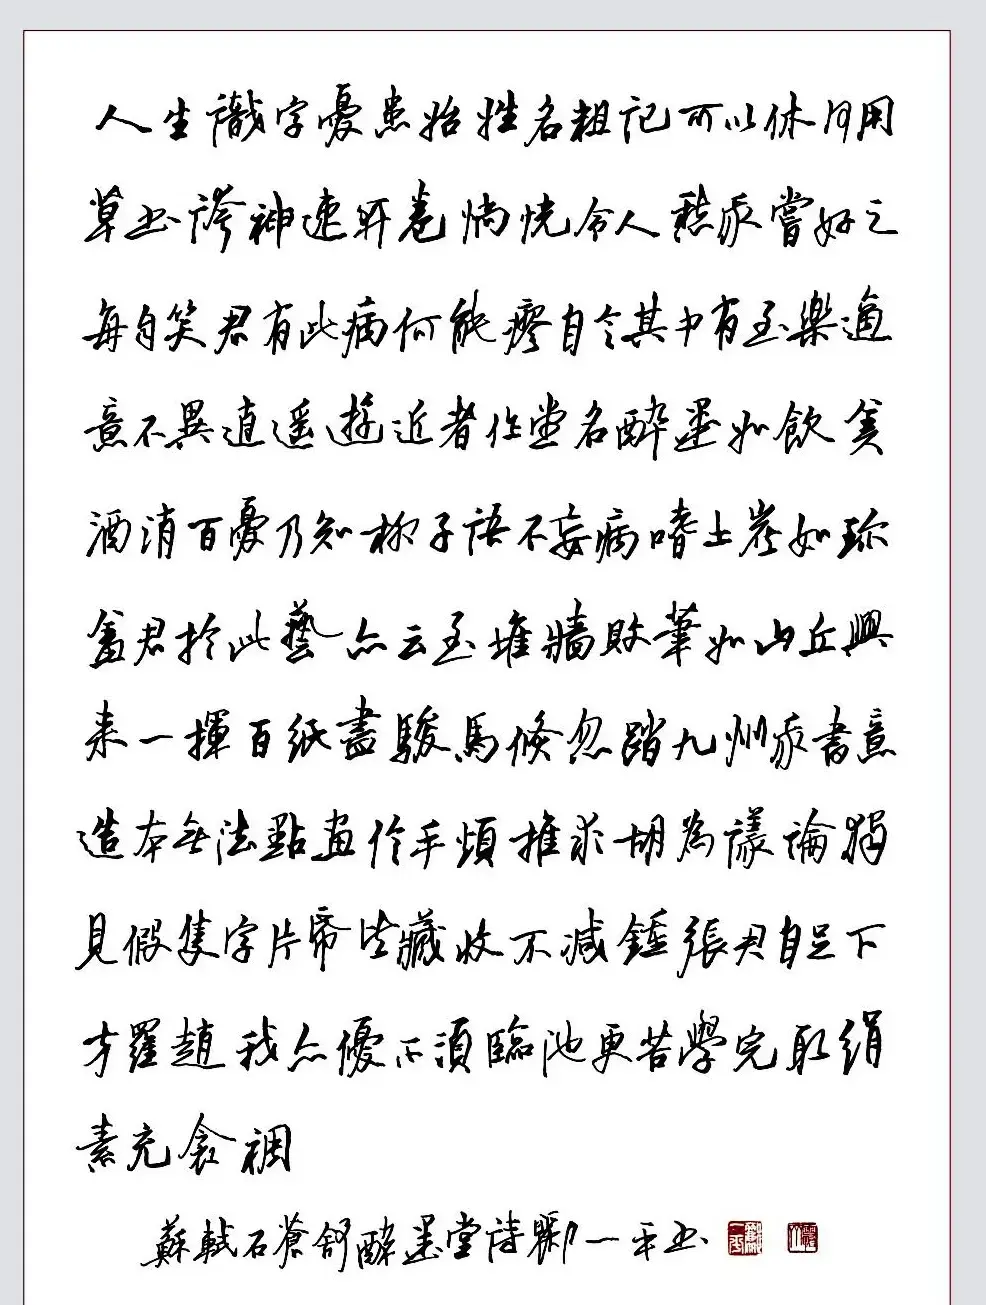 人生識字憂患始姓名粗記可以休何用
草书誇神速開卷惝恍令人愁我嘗好之
每自笑君有此病何能瘳自今其中有至樂適
意不異逍遥遊近者作堂名醉墨如飲美
酒消百憂乃知柳子語不妄病嗜土炭如珍
羞君於此藝亦云至堆牆敗筆如山丘興
来一揮百紙盡駿馬倏忽踏九州我書意
造本無法點畫信手煩推求胡為議論獨
見假隻字片帋皆藏收不減鍾張君自足下
方羅趙我亦優不須臨池更苦學完取絹
素充衾裯
蘇軾石蒼舒醉墨堂詩 劉一平书